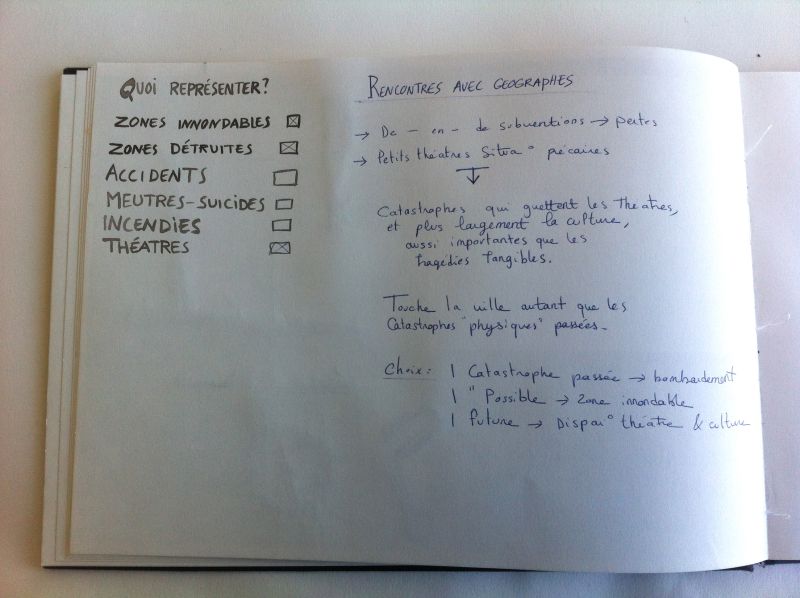 QUOI REPRÉSENTER?
ZONES INNONDABLES
ZONES DÉTRUITES
ACCIDENTS
MEUTRES-SUICIDES
INCENDIES
THÉATRES
RENCONTRES AVEC GEOGRAPHES
→ De - en - de subventions → pertes
→ Petits théâtres Situa° précaires
Catastrophes qui guettent les theatres,
et plus largement la culture,
aussi importantes que les
tragédies tangibles.
Touche la ville autant que les
Catastrophes "physiques" passées.
Choix: 1 Catastrophe passée → bombardement
1 " Possible → Zone innondable
1 future → Dispar° théâtre & culture